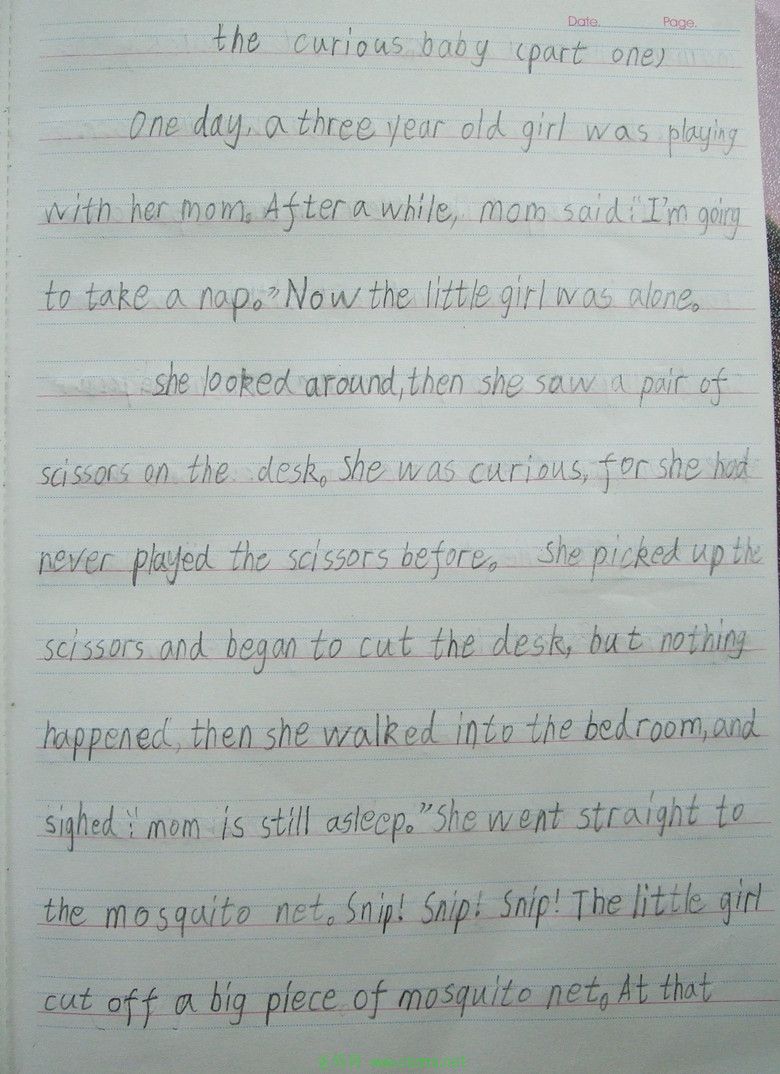 Date. Page.
the curious baby (part one)
One day, a three year old girl was playing
with her mom. After a while, mom said: "I'm going
to take a nap." Now the little girl was alone.
she looked around, then she saw a pair of
scissors on the desk. She was curious, for she had
never played the scissors before. She picked up the
scissors and began to cut the desk, but nothing
happened, then she walked into the bedroom, and
sighed: "mom is still asleep." She went straight to
the mosquito net. Snip! Snip! Snip! The little girl
cut off a big piece of mosquito net. At that